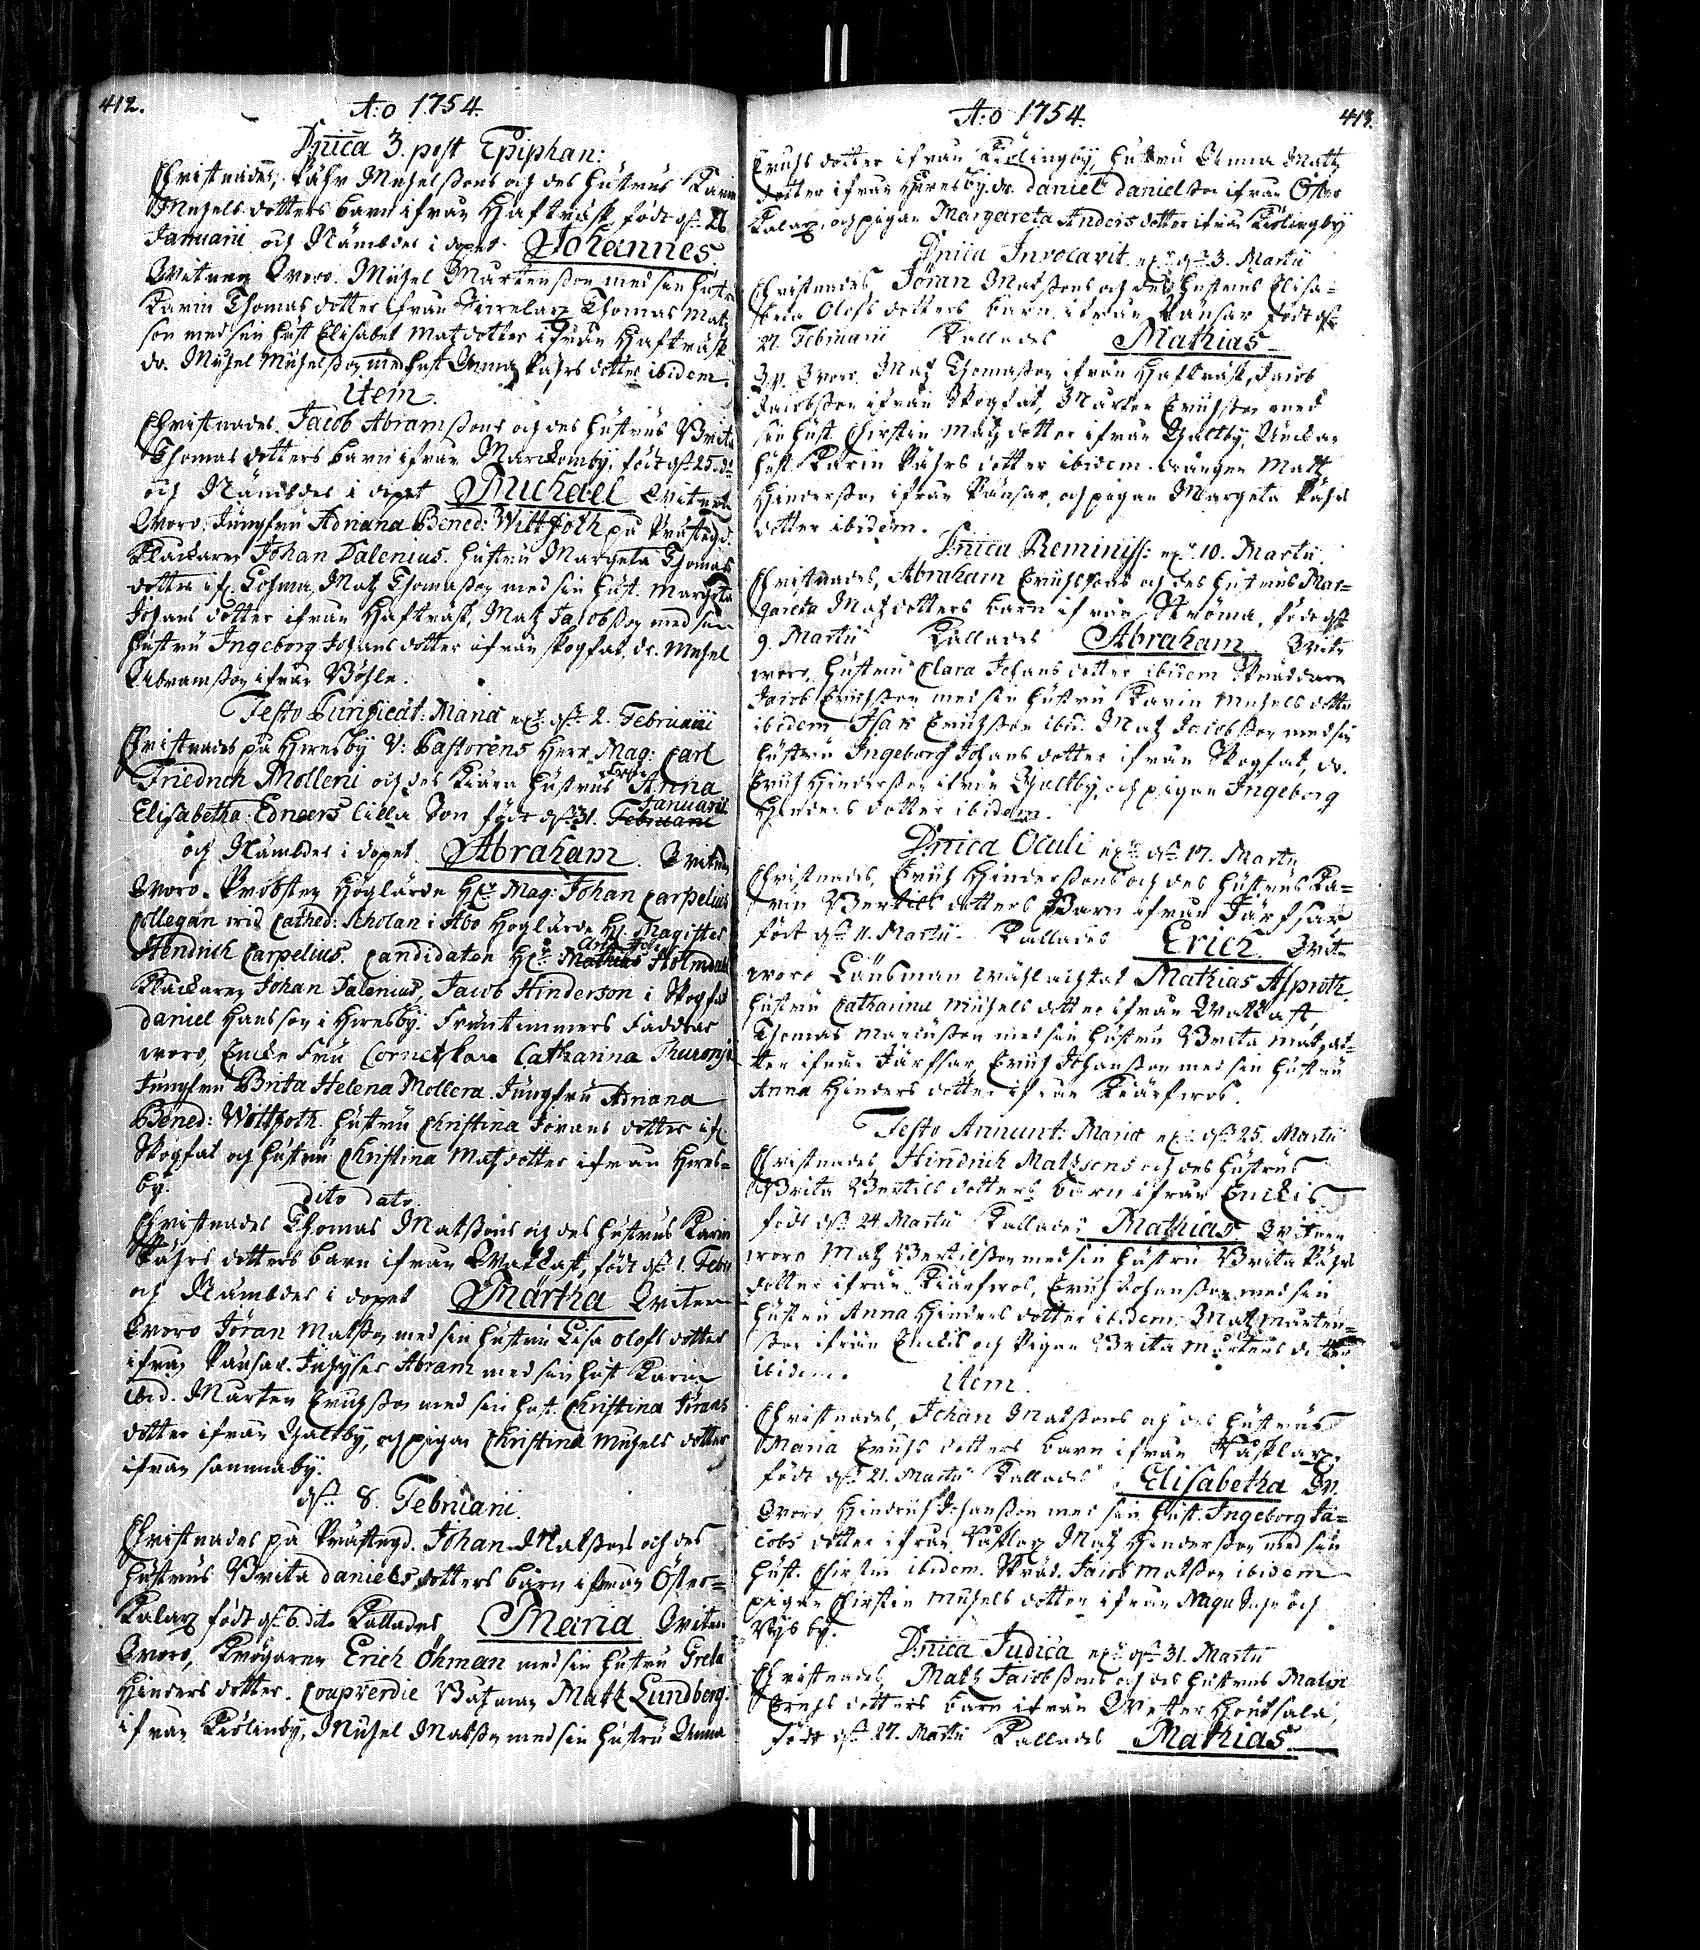 412.
A:o 1754.
Dnica 3. post Epiphan:
Christnades, Påhr Michelssons och des hustrus Karin
Michels dotters barn ifrån Hafträsk, födt d. 26
Januarii och Nämbdes i dopet Johannes.
Witnen Woro. Michel Mårtensson med sin hustru
Karin Thomas dotter ifrån Thomas Matz
son med sin hust Elisabet Matzdotter ifrån Hafträsk
dr. Michel Michelsson med hust Anna Påhrs dotter ibidem.
item.
Christnades. Jacob Abramssons och des hustrus Brita
Thomas dotters barn ifrån Marckomby, födt d. 25. do
och Nämbdes i dopet Michael Witnen
Woro. Jungfru Adriana Bened: Wittfoth på Prästegd.
Klockaren Johan Dalenius. hustru Margeta Thomas
dotter if. Matz Thomasson med sin hust. Margeta
Johans dotter ifrån Hafträsk, Matz Jacobsson med sin
hustru Ingeborg Johans dotter ifrån Skogfat, dr. Michel
Abramsson ifrån Böhle.
Festo Purificat: Mariæ d. 2. Februarii
Christnades på Heresby V: Pastorens Herr Mag: Carl
Friedrich Molleri och des kiära hustrus Fru Anna
Elisabetha Edneers lilla Son födt d. 31. Februarii Januarii
och Nämbdes i dopet Abraham. Witnen
Woro. Probsten Höglärde Hr. Mag: Johan Carpelius
Collegan wid Cathed: Scholan i Åbo Höglärde Hr. Magister
Hendrich Carpelius. Candidaten Hr. Mathias Holmdahl
Klockaren Johan Dalenius, Jacob Hinderson i Skogfat
Daniel Hansson i Heresby. Fruntimmers Faddrar
woro, Encke Fru Cornetskan Catharina Thuronji
Jungfru Brita Helena Mollera. Jungfru Adriana
Bened: Wittfoth. hustru Christina Jörans dotter if.
Skogfat och hustru Christina Matzdotter ifrån Heres-
by.
dito dato
Christnades Thomas Matssons och des hustrus Karin
Påhrs dotters barn ifrån Wallast, födt d. 1. Febr
och Nämbdes i dopet Martha Witnen
Woro Jöran Matsson med sin hustru Lisa Olofs dotter
ifrån Pänsar. Inhyses Abram med sin hust Karin
ibid. Mårten Erichsson med sin hust. Christina Jörans
dotter ifrån Galtby, och pigan Christina Michels dotter
ifrån samma by.
d. 8. Februarii.
Christnades på Prästegd. Johan Matssons och des
hustrus Brita Daniels dotters barn ifrån Öster-
Kalax födt d. 6. dito kallades Maria Witnen
Woro, Krögaren Erich Öhman med sin hustru Greta
Hinders dotter. Couverdie Båtsman Matz Lundberg
ifrån Kiölingby, Michel Matsson med sin hustru Anna
A:o 1754.
413.
Erichs dotter ifrån Kiölingby, hustru Anna Matz
dotter ifrån Heresby. dr. Daniel Danielsson ifrån Öster
Kalax, och pigan Margareta Anders dotter ifrån Kiölingby
Dnica Invocavit d. 3. Martii
Christnades, Jöran Matssons och des hustrus Elisa-
beta Olofs dotters barn ifrån Pänsar födt d.
27. Februarii Kallades Mathias
Woro Matz Thomasson ifrån Hafträsk, Jacob
Jacobsson ifrån Skogfat, Mårten Erichsson med
sin hust. Chirstin Matz dotter ifrån Galtby, Enckan
hust. Karin Påhrs dotter ibidem. drängen Matz
Hindersson ifrån Pänsar, och pigan Margeta Påhrs
dotter ibidem.
Dnica Reminiss: 10. Martii.
Christnades, Abraham Erichssons och des hustrus Mar-
gareta Matzdotters barn ifrån Ströma, födt d.
9. Martii Kallades Abraham Witn
woro, hustru Clara Johans dotter ibidem Skräddaren
Jacob Erichsson med sin hustru Karin Michels dotter
ibidem Isak Erichsson ibid. Matz Jacobsson med sin
hustru Ingeborg Johans dotter ifrån Skogfat, dr.
Erich Hindersson ifrån Galtby, och pigan Ingeborg
Hinders dotter ibidem.
Dnica Oculi d. 17. Martii
Christnades, Erich Hinderssons och des hustrus Ka-
rin Bertils dotters Barn ifrån Järfsar
födt d. 11. Martii. Kallades Erich Witn
woro Länsman wählachtat Mathias Asproth.
hustru Catharina Michels dotter ifrån Wallast,
Thomas Marcusson med sin hustru Brita Matzdot-
ter ifrån Järfsar, Erich Johansson med sin hustru
Anna Hinders dotter ifrån
Festo Annunt: Mariæ d. 25. Martii
Christnades, Hindrich Matssons och des hustrus
Brita Bertils dotters barn ifrån Enckis
födt d. 24. Martii Kallades Mathias Witnen
woro Matz Bertilsson med sin hustru Brita Påhrs
dotter ifrån Erich Johansson med sin
hustru Anna Hinders dotter ibidem, Matz Mårten-
sson ifrån Enckis och Pigan Brita Mårtens dotter
ibidem.
item.
Christnades, Johan Matssons och des hustrus
Maria Erichs dotters barn ifrån
födt d. 21. Martii Kallades Elisabetha W.
Woro, Hindrich Johansson med sin hust. Ingeborg Ja-
cobs dotter ifrån Matz Hindersson med sin
hust. Chirstin ibidem. Skräd. Jacob Matsson ibidem
pigan Chirstin Michels dotter ifrån Nagu Sohn och
by.
Dnica Judica d. 31. Martii
Christnades, Matz Jacobssons och des hustrus Malin
Erichs dotters barn ifrån Wester Houtsala,
födt d. 27. Martii Kallades Mathias.